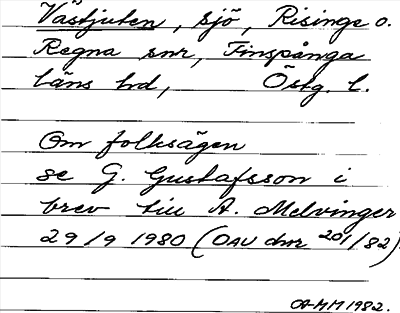 Västjuten, sjö, Risinge o.
Regna snr, Finspånga
läns hd, Östg. l.
Om folksägen
se G. Gustafsson i
brev till A. Melvinger
29/9 1980 (OAU dnr 201/82)
OA-MM 1982.